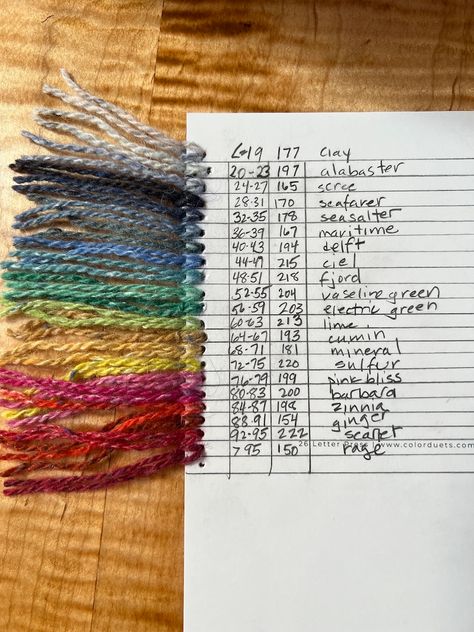 <19 177 clay
20-23 197 alabaster
24-27 165 scree
28-31 170 seafarer
32-35 178 seasalter
36-39 167 maritime
40-43 194 delft
44-47 215 ciel
48-51 218 fjord
52-55 204 vaseline green
56-59 203 electric green
60-63 213 lime
64-67 193 cumin
68-71 181 mineral
72-75 220 sulfur
76-79 199 pink bliss
80-83 200 barbara
84-87 198 zinnia
88-91 154 ginger
92-95 222 scarlet
26 Letter Press | www.colorduets.com
795 150 rage